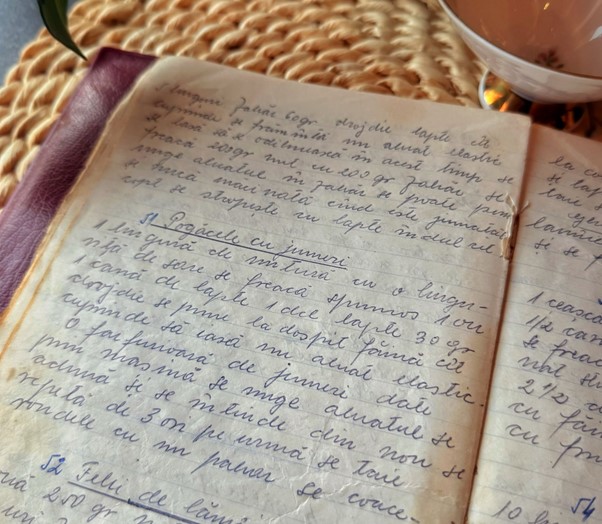 linguri zahăr 60 gr drojdie lapte cît
cuprinde se frămîntă un aluat elastic
se lasă să se odihnească în acest timp se
freacă 200 gr unt cu 200 gr zahăr se
unge aluatul în zahăr se poate pune
și nucă măcinată cînd este jumătate
copt se stropește cu lapte îndulcit
51 Pogăcele cu jumeri
1 lingură de untură cu o lingu-
riță de sare se freacă spumos 1 ou
1 cană de lapte 1 del lapte 30 gr
drojdie se pune la dospit făină cît
cuprinde să iasă un aluat elastic.
O farfurioară de jumeri date
prin mașină se unge aluatul se
adună și se întinde din nou se
repetă de 3 ori pe urmă se taie
rondele cu un pahar se coace-
52 Felii de lămî
250 gr
la co
se la
lămîie
și se p
1 ceașcă
1/2 can
se freac
nat
2 1/2 d
cu făi
cu pr
54
10 li